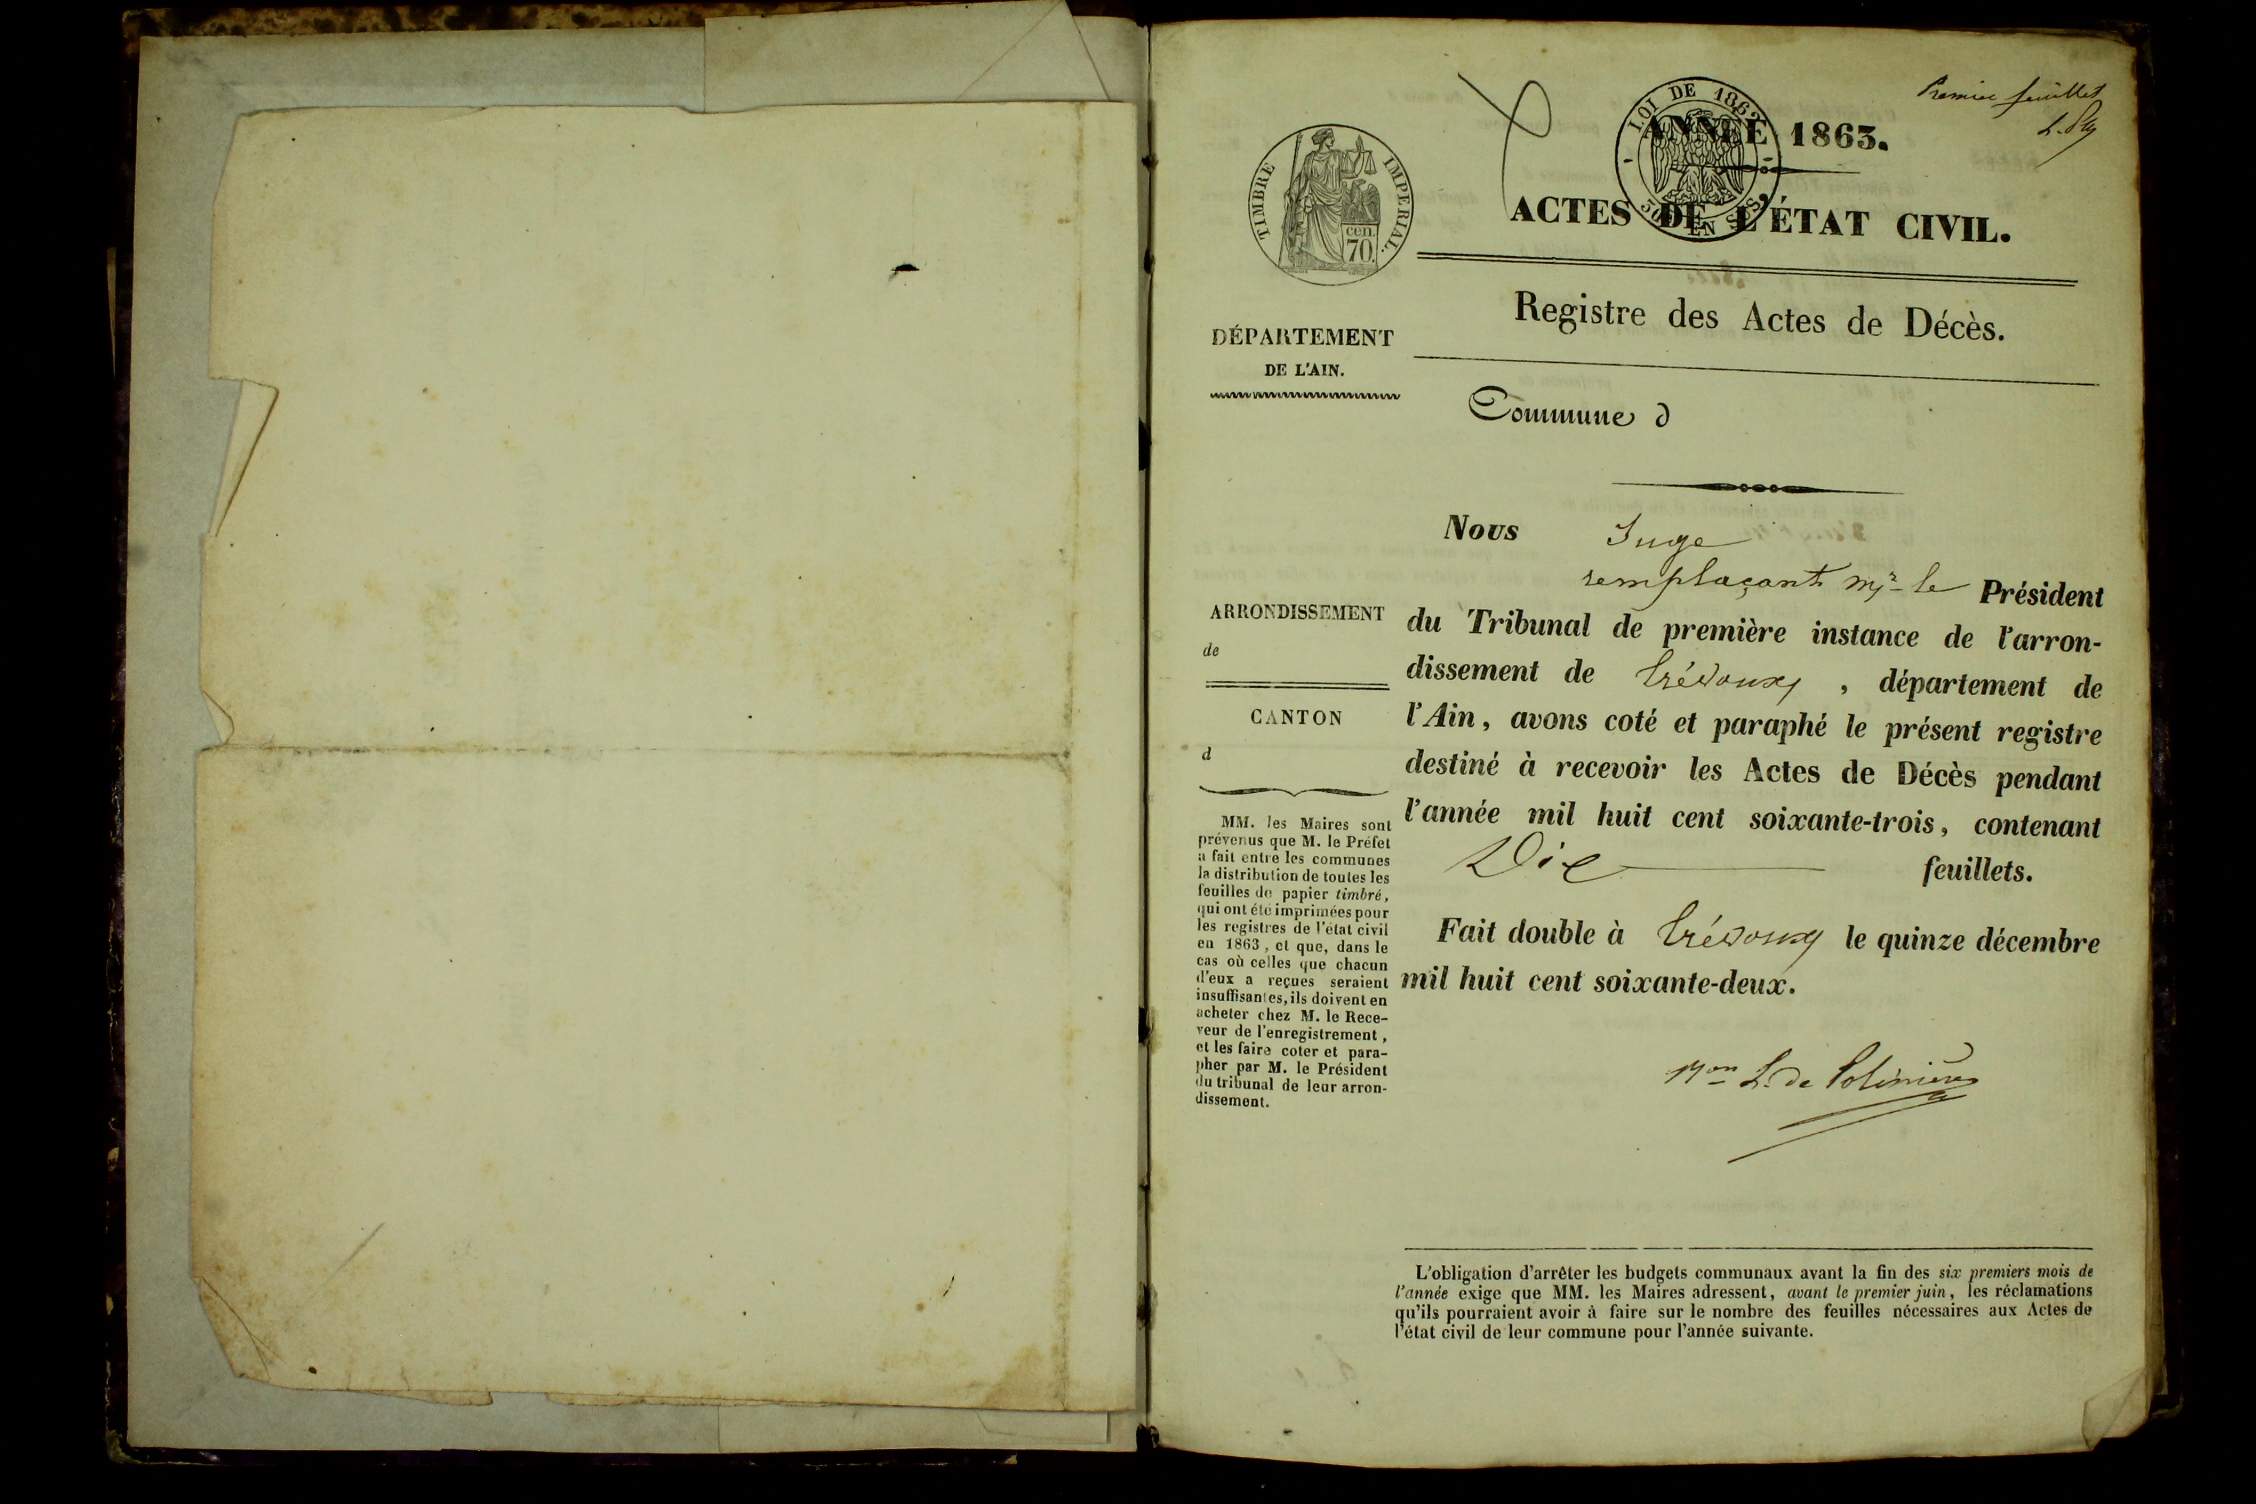 Premier feuillet
LOI DE 1862
ANNÉE 1863.
TIMBRE IMPERIAL.
cen.
70.
50 EN SUS
ACTES DE L'ÉTAT CIVIL.
Registre des Actes de Décès.
DÉPARTEMENT
DE L'AIN.
Commune d
Nous Juge
remplaçant Mr le Président
du Tribunal de première instance de l'arron-
dissement de Trévoux, département de
l'Ain, avons coté et paraphé le présent registre
destiné à recevoir les Actes de Décès pendant
l'année mil huit cent soixante-trois, contenant
Dix feuillets.
Fait double à Trévoux le quinze décembre
mil huit cent soixante-deux.
L. de Polinière
ARRONDISSEMENT
de
CANTON
d
MM. les Maires sont
prévenus que M. le Préfet
a fait entre les communes
la distribution de toutes les
feuilles de papier timbré,
qui ont été imprimées pour
les registres de l'état civil
en 1863, et que, dans le
cas où celles que chacun
d'eux a reçues seraient
insuffisantes, ils doivent en
acheter chez M. le Rece-
veur de l'enregistrement,
et les faire coter et para-
pher par M. le Président
du tribunal de leur arron-
dissement.
L'obligation d'arrêter les budgets communaux avant la fin des six premiers mois de
l'année exige que MM. les Maires adressent, avant le premier juin, les réclamations
qu'ils pourraient avoir à faire sur le nombre des feuilles nécessaires aux Actes de
l'état civil de leur commune pour l'année suivante.